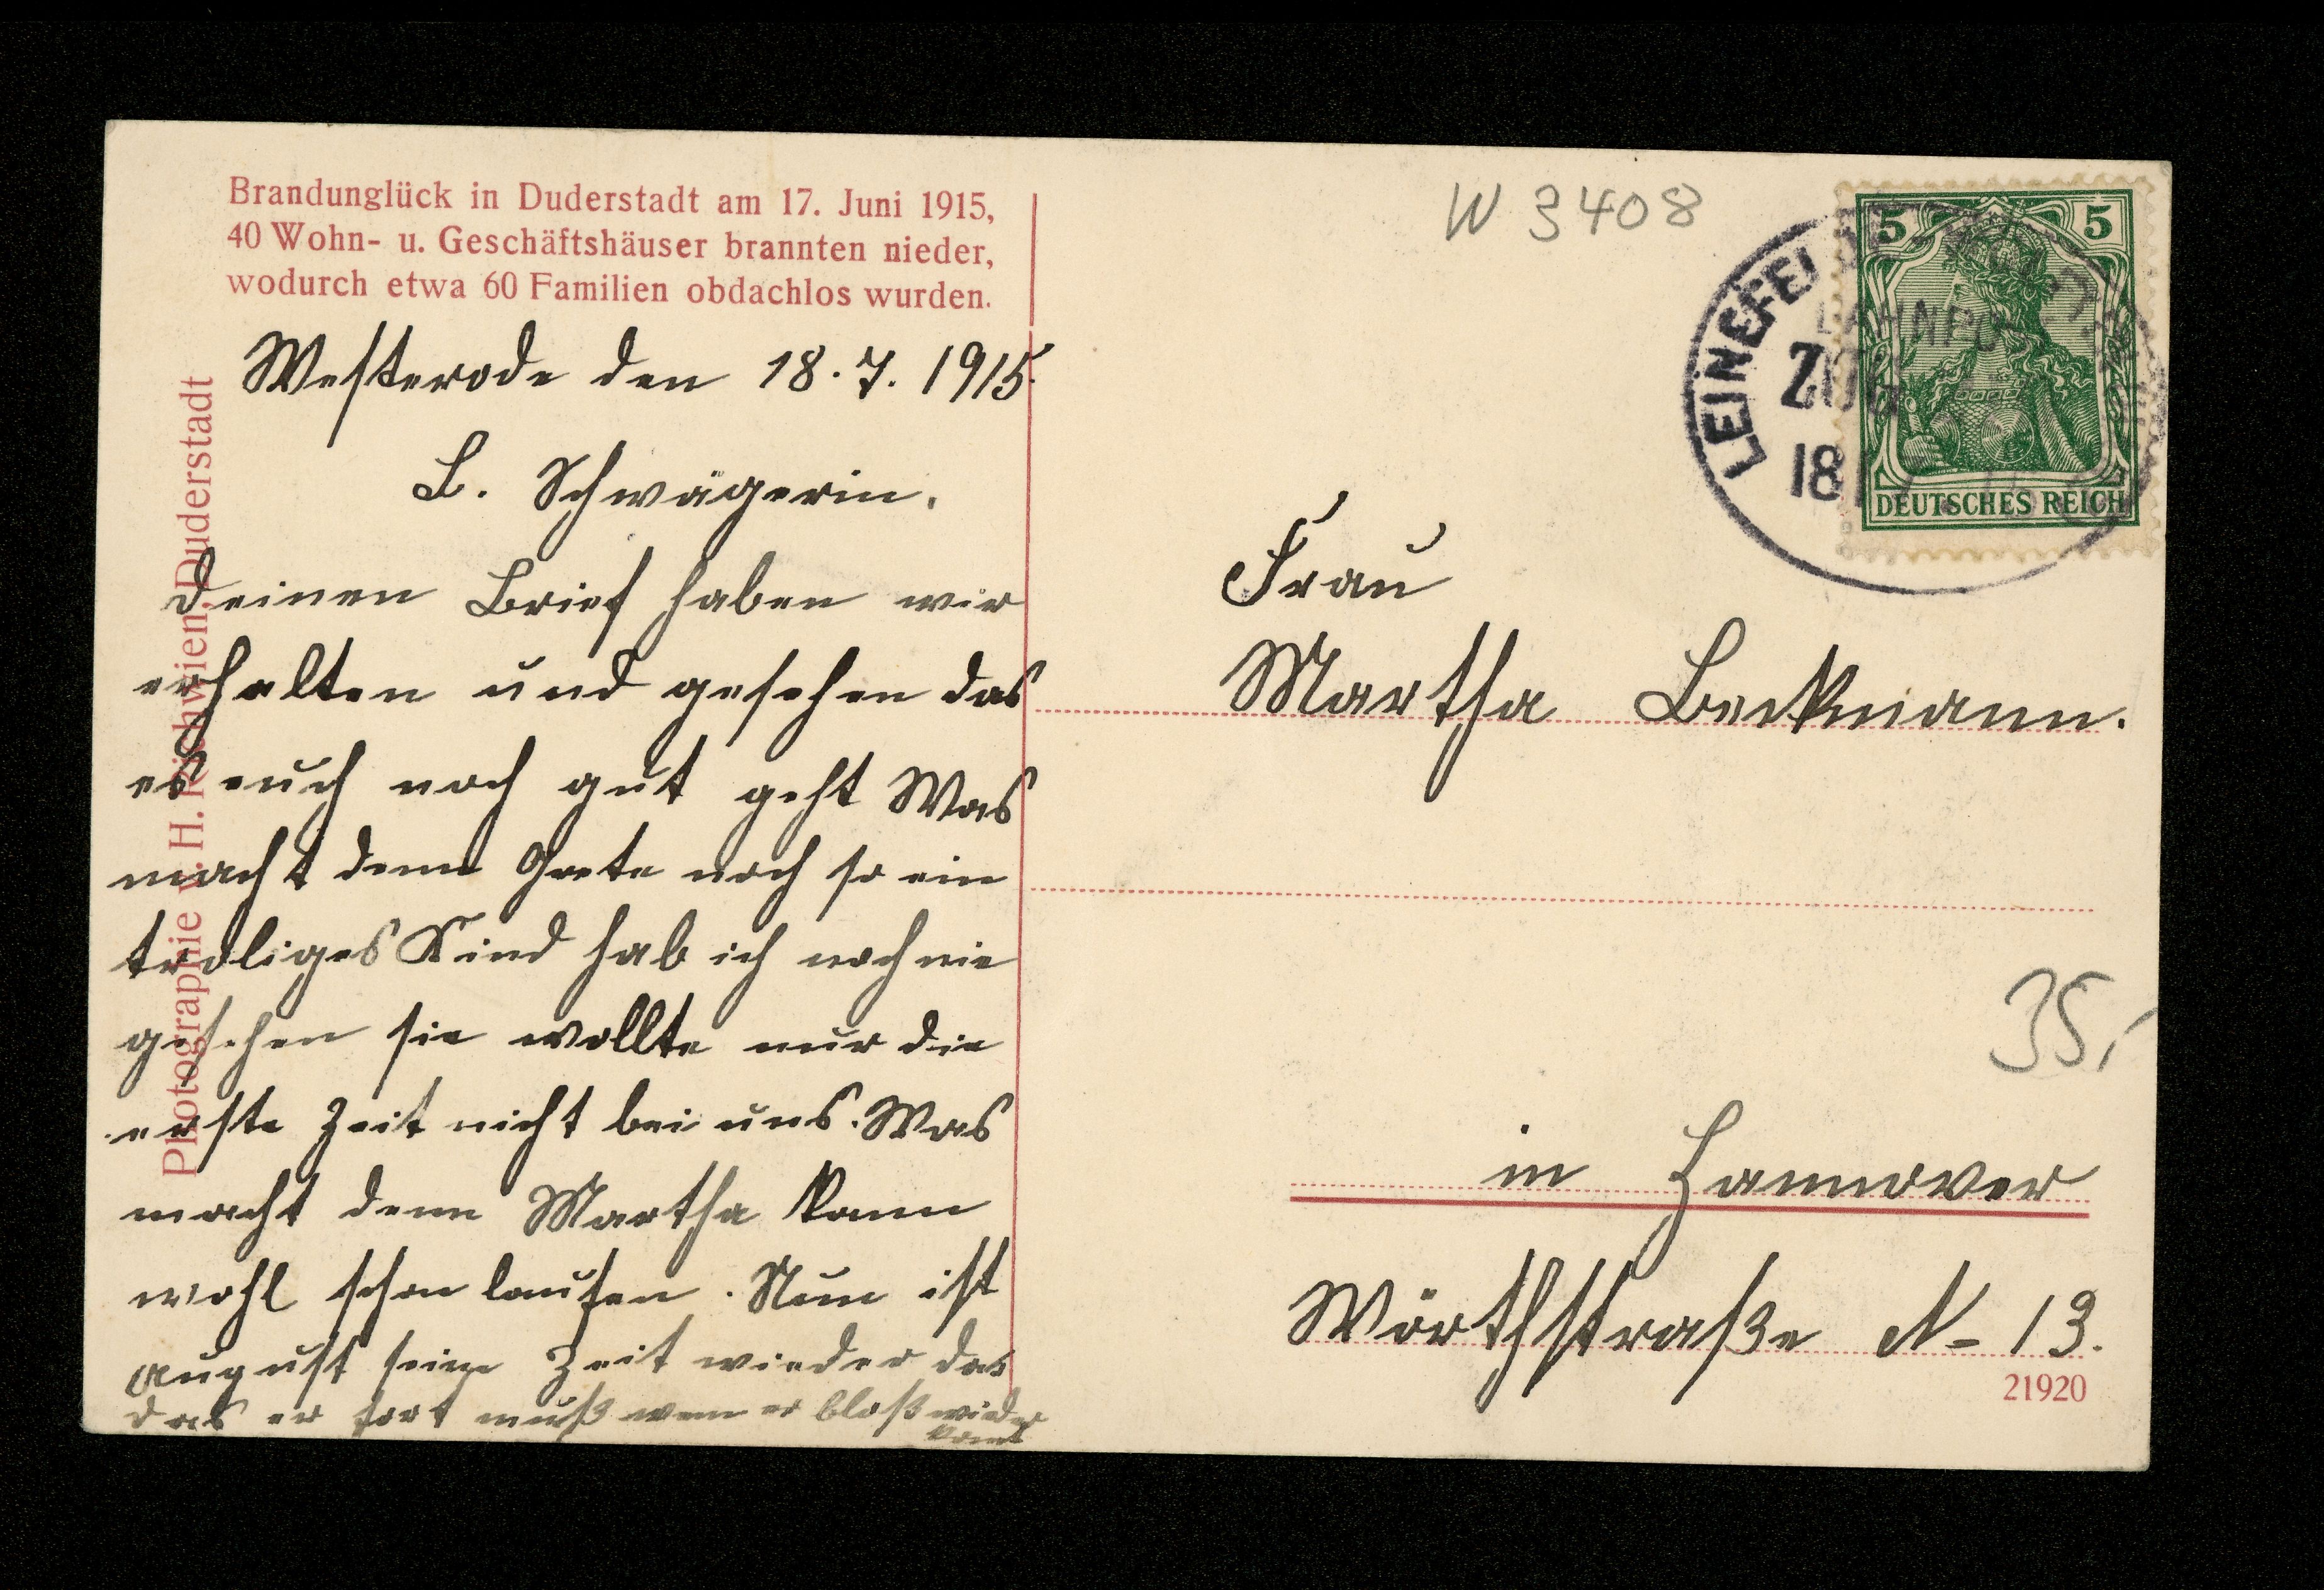 Brandunglück in Duderstadt am 17. Juni 1915,
40 Wohn- u. Geschäftshäuser brannten nieder,
wodurch etwa 60 Familien obdachlos wurden.
Photographie v. H. Richwien, Duderstadt
Westerode den 18. 7. 1915.
L. Schwägerin.
Deinen Brief haben wir
erhalten und gesehen das
es euch noch gut geht Was
macht denn Grete noch so ein
trolliges Kind hab ich noch nie
gesehen sie wollte nur die
erste Zeit nicht bei uns. Was
macht denn Martha kann
wohl schon laufen. Nun ist
August seine Zeit wieder das
das er fort muß wenn er bloß wieder
komt
W 3408
5 5
DEUTSCHES REICH
LEINEFEL
BAHNPO
ZUG
18
Frau
Martha Beckmann.
35,-
in Hannover
Wörthstraße N- 13.
21920